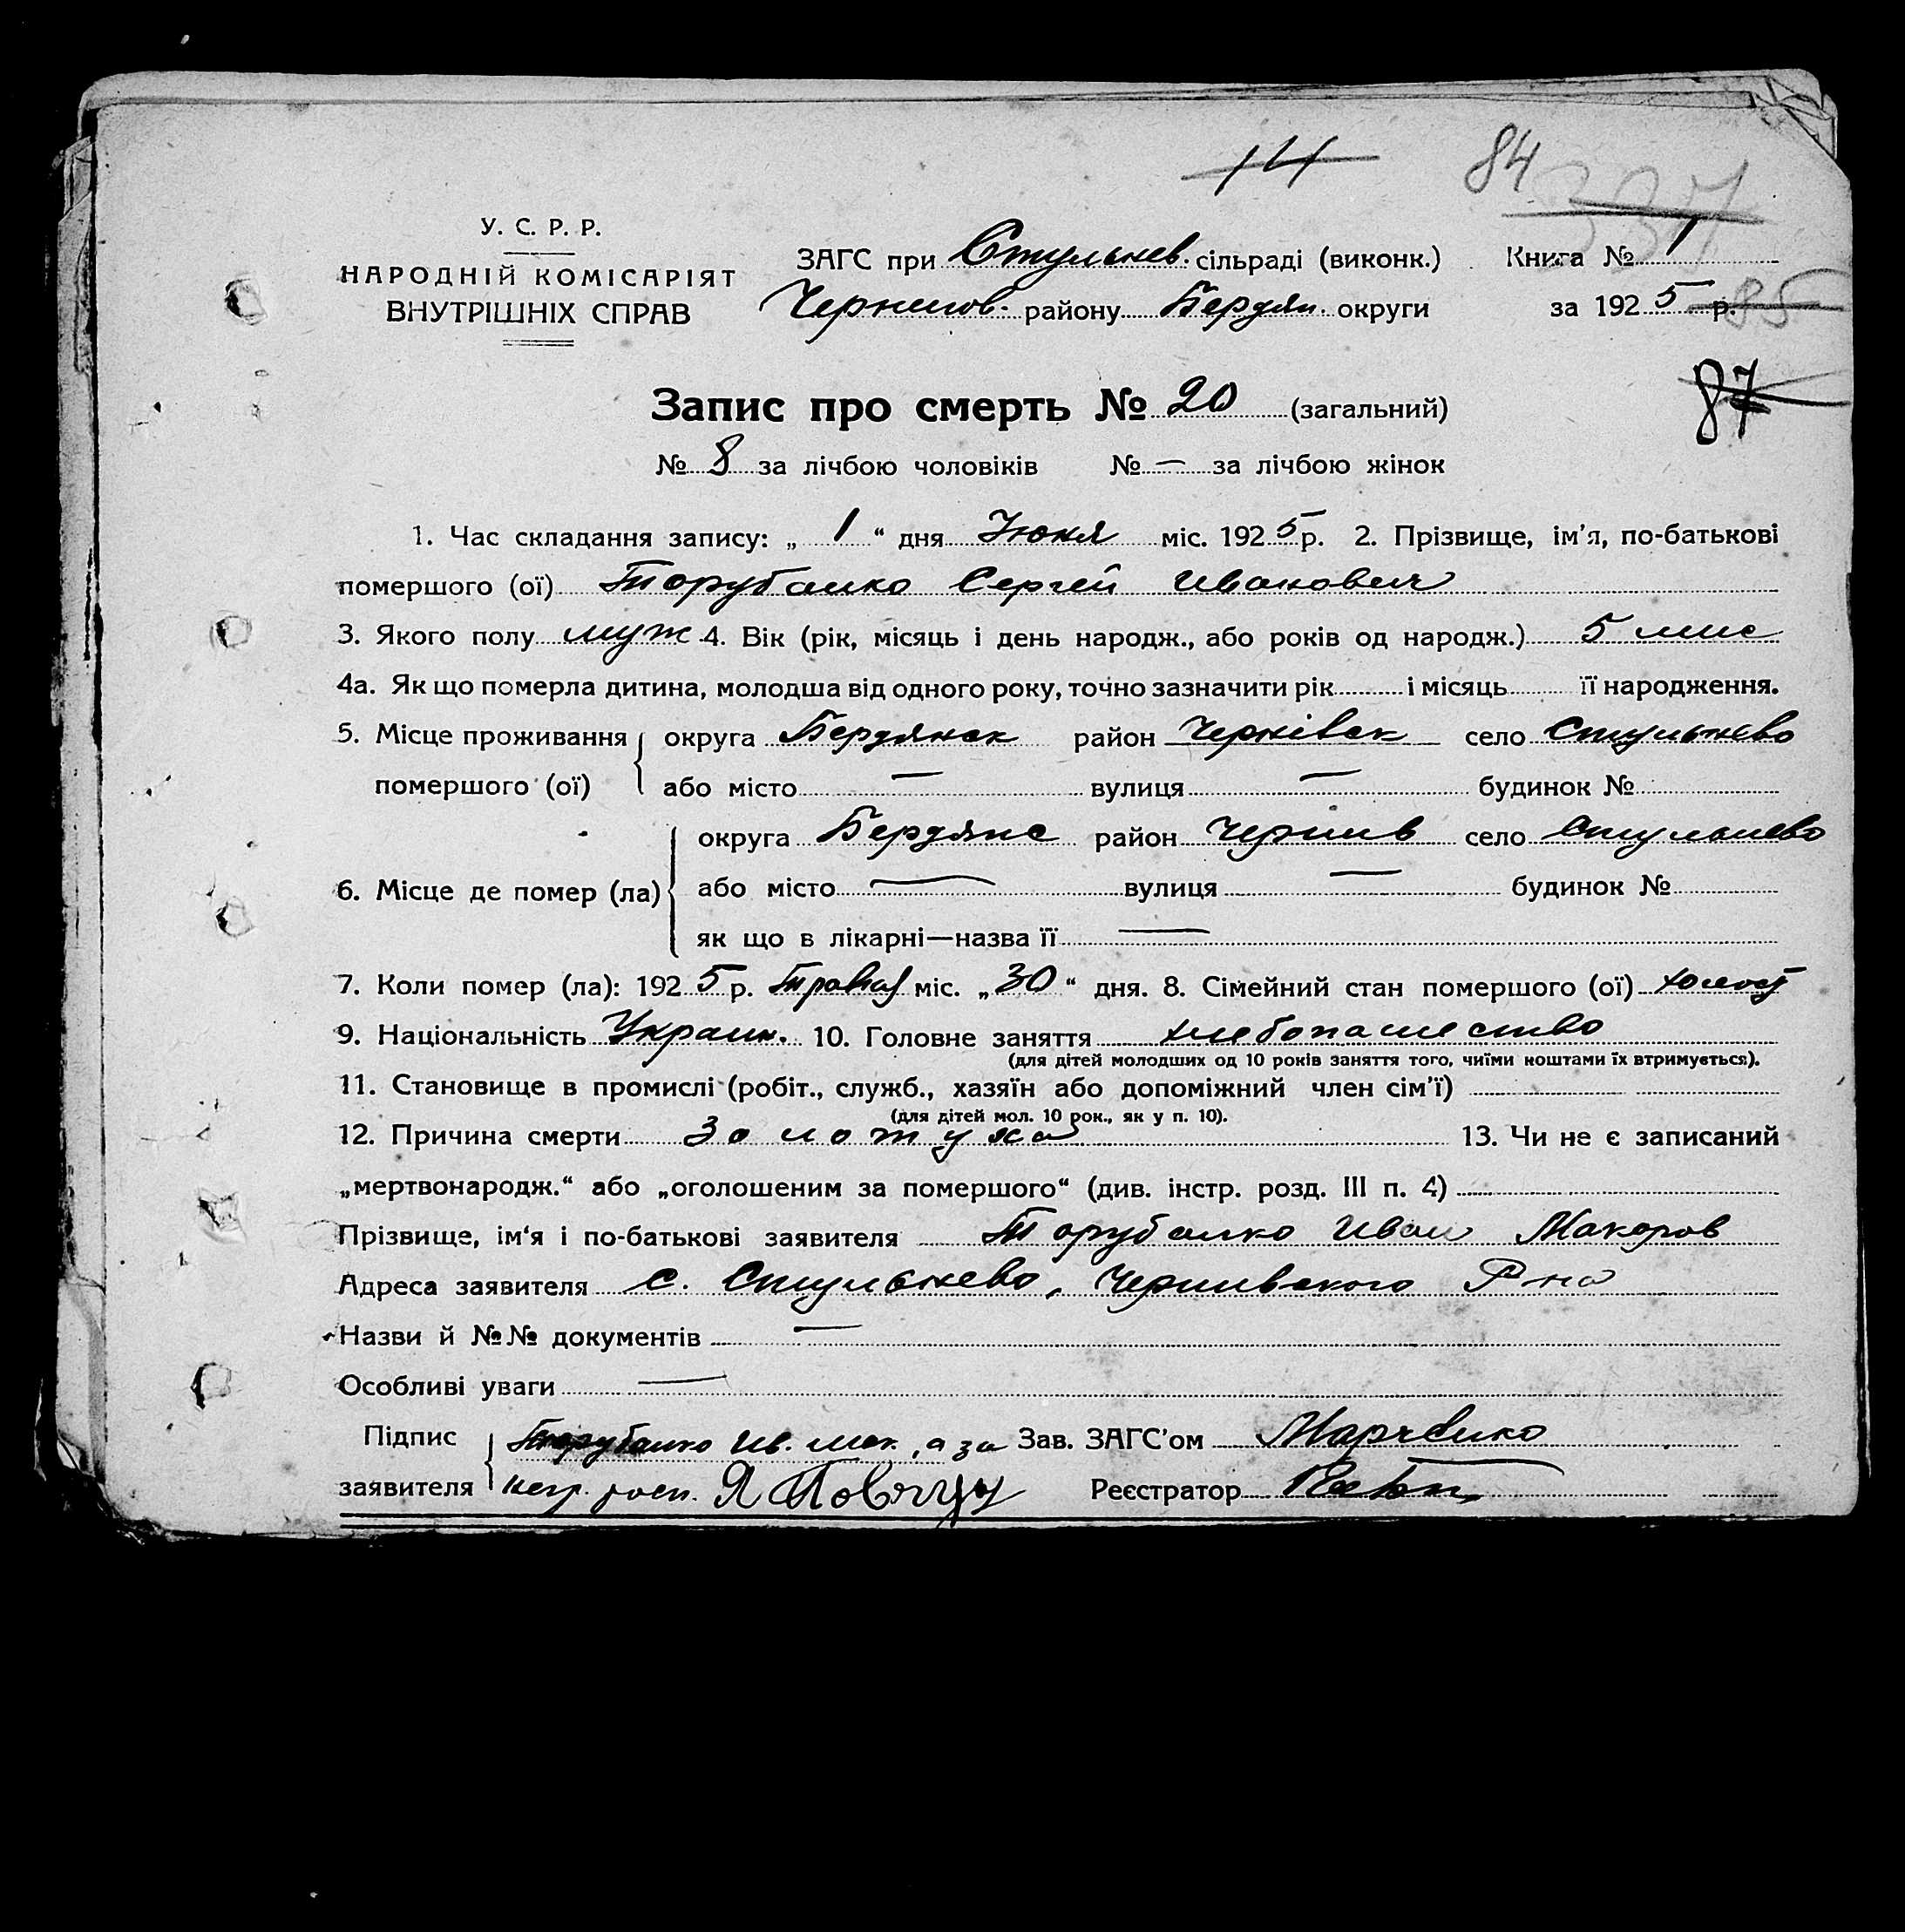 14 84 337
У. С. Р. Р.
НАРОДНІЙ КОМІСАРІЯТ
ВНУТРІШНІХ СПРАВ
ЗАГС при Стульнев. сільраді (виконк.) Книга № 1
Чернигов. району Бердян. округи за 1925 р. 85
87
Запис про смерть № 20 (загальний)
№ 8 за лічбою чоловіків № — за лічбою жінок
1. Час складання запису: „ 1 “ дня Июня міс. 1925 р. 2. Прізвище, ім'я, по-батькові
помершого (ої) Торубалко Сергей Иванович
3. Якого полу муж 4. Вік (рік, місяць і день народж., або років од народж.) 5 мис
4а. Як що померла дитина, молодша від одного року, точно зазначити рік і місяць її народження.
5. Місце проживання округа Бердянск район Чернівск село Стульнево
помершого (ої) або місто — вулиця — будинок №
округа Бердянс район Чернив село Стульнево
6. Місце де помер (ла) або місто — вулиця — будинок №
як що в лікарні—назва її —
7. Коли помер (ла): 1925 р. Травня міс. „30“ дня. 8. Сімейний стан помершого (ої) холост
9. Національність Украин. 10. Головне заняття хлебопашество
(для дітей молодших од 10 років заняття того, чиїми коштами їх втримується).
11. Становище в промислі (робіт., служб., хазяїн або допоміжний член сім'ї)
(для дітей мол. 10 рок., як у п. 10).
12. Причина смерти Золотуха 13. Чи не є записаний
„мертвонародж.“ або „оголошеним за помершого“ (див. інстр. розд. III п. 4)
Прізвище, ім'я і по-батькові заявителя Торубалко Иван Макаров
Адреса заявителя с. Стульнево, Чернивского Р-на
Назви й №№ документів —
Особливі уваги —
Підпис Торубалко Ив. Мак., а за Зав. ЗАГС'ом Марченко
заявителя негр. росп. Реєстратор